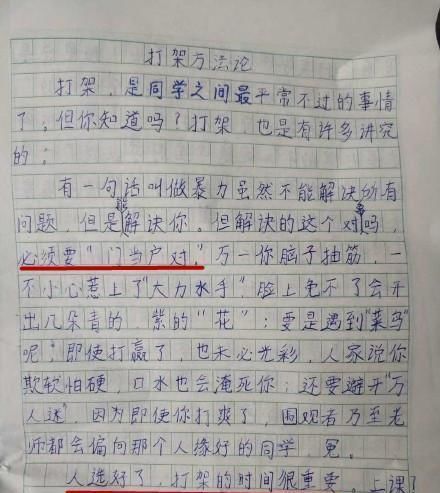 打架方法论
打架，是同学之间最平常不过的事情
了。但你知道吗？打架，也是有许多讲究
的：
有一句话叫做暴力虽然不能解决所有
问题，但是能解决你。但解决的这个对象吗，
必须要“门当户对。”万一你脑子抽筋，一
不小心惹上了“大力水手”，脸上免不了会开
出几朵青的、紫的“花”；要是遇到“菜鸟”
呢；即使打赢了，也未必光彩，人家说你
欺软怕硬，口水也会淹死你；还要避开“万
人迷”，因为即使你打爽了，围观者乃至老
师都会偏向那个人缘好的同学，冤。
人选好了，打架的时间很重要。上课！